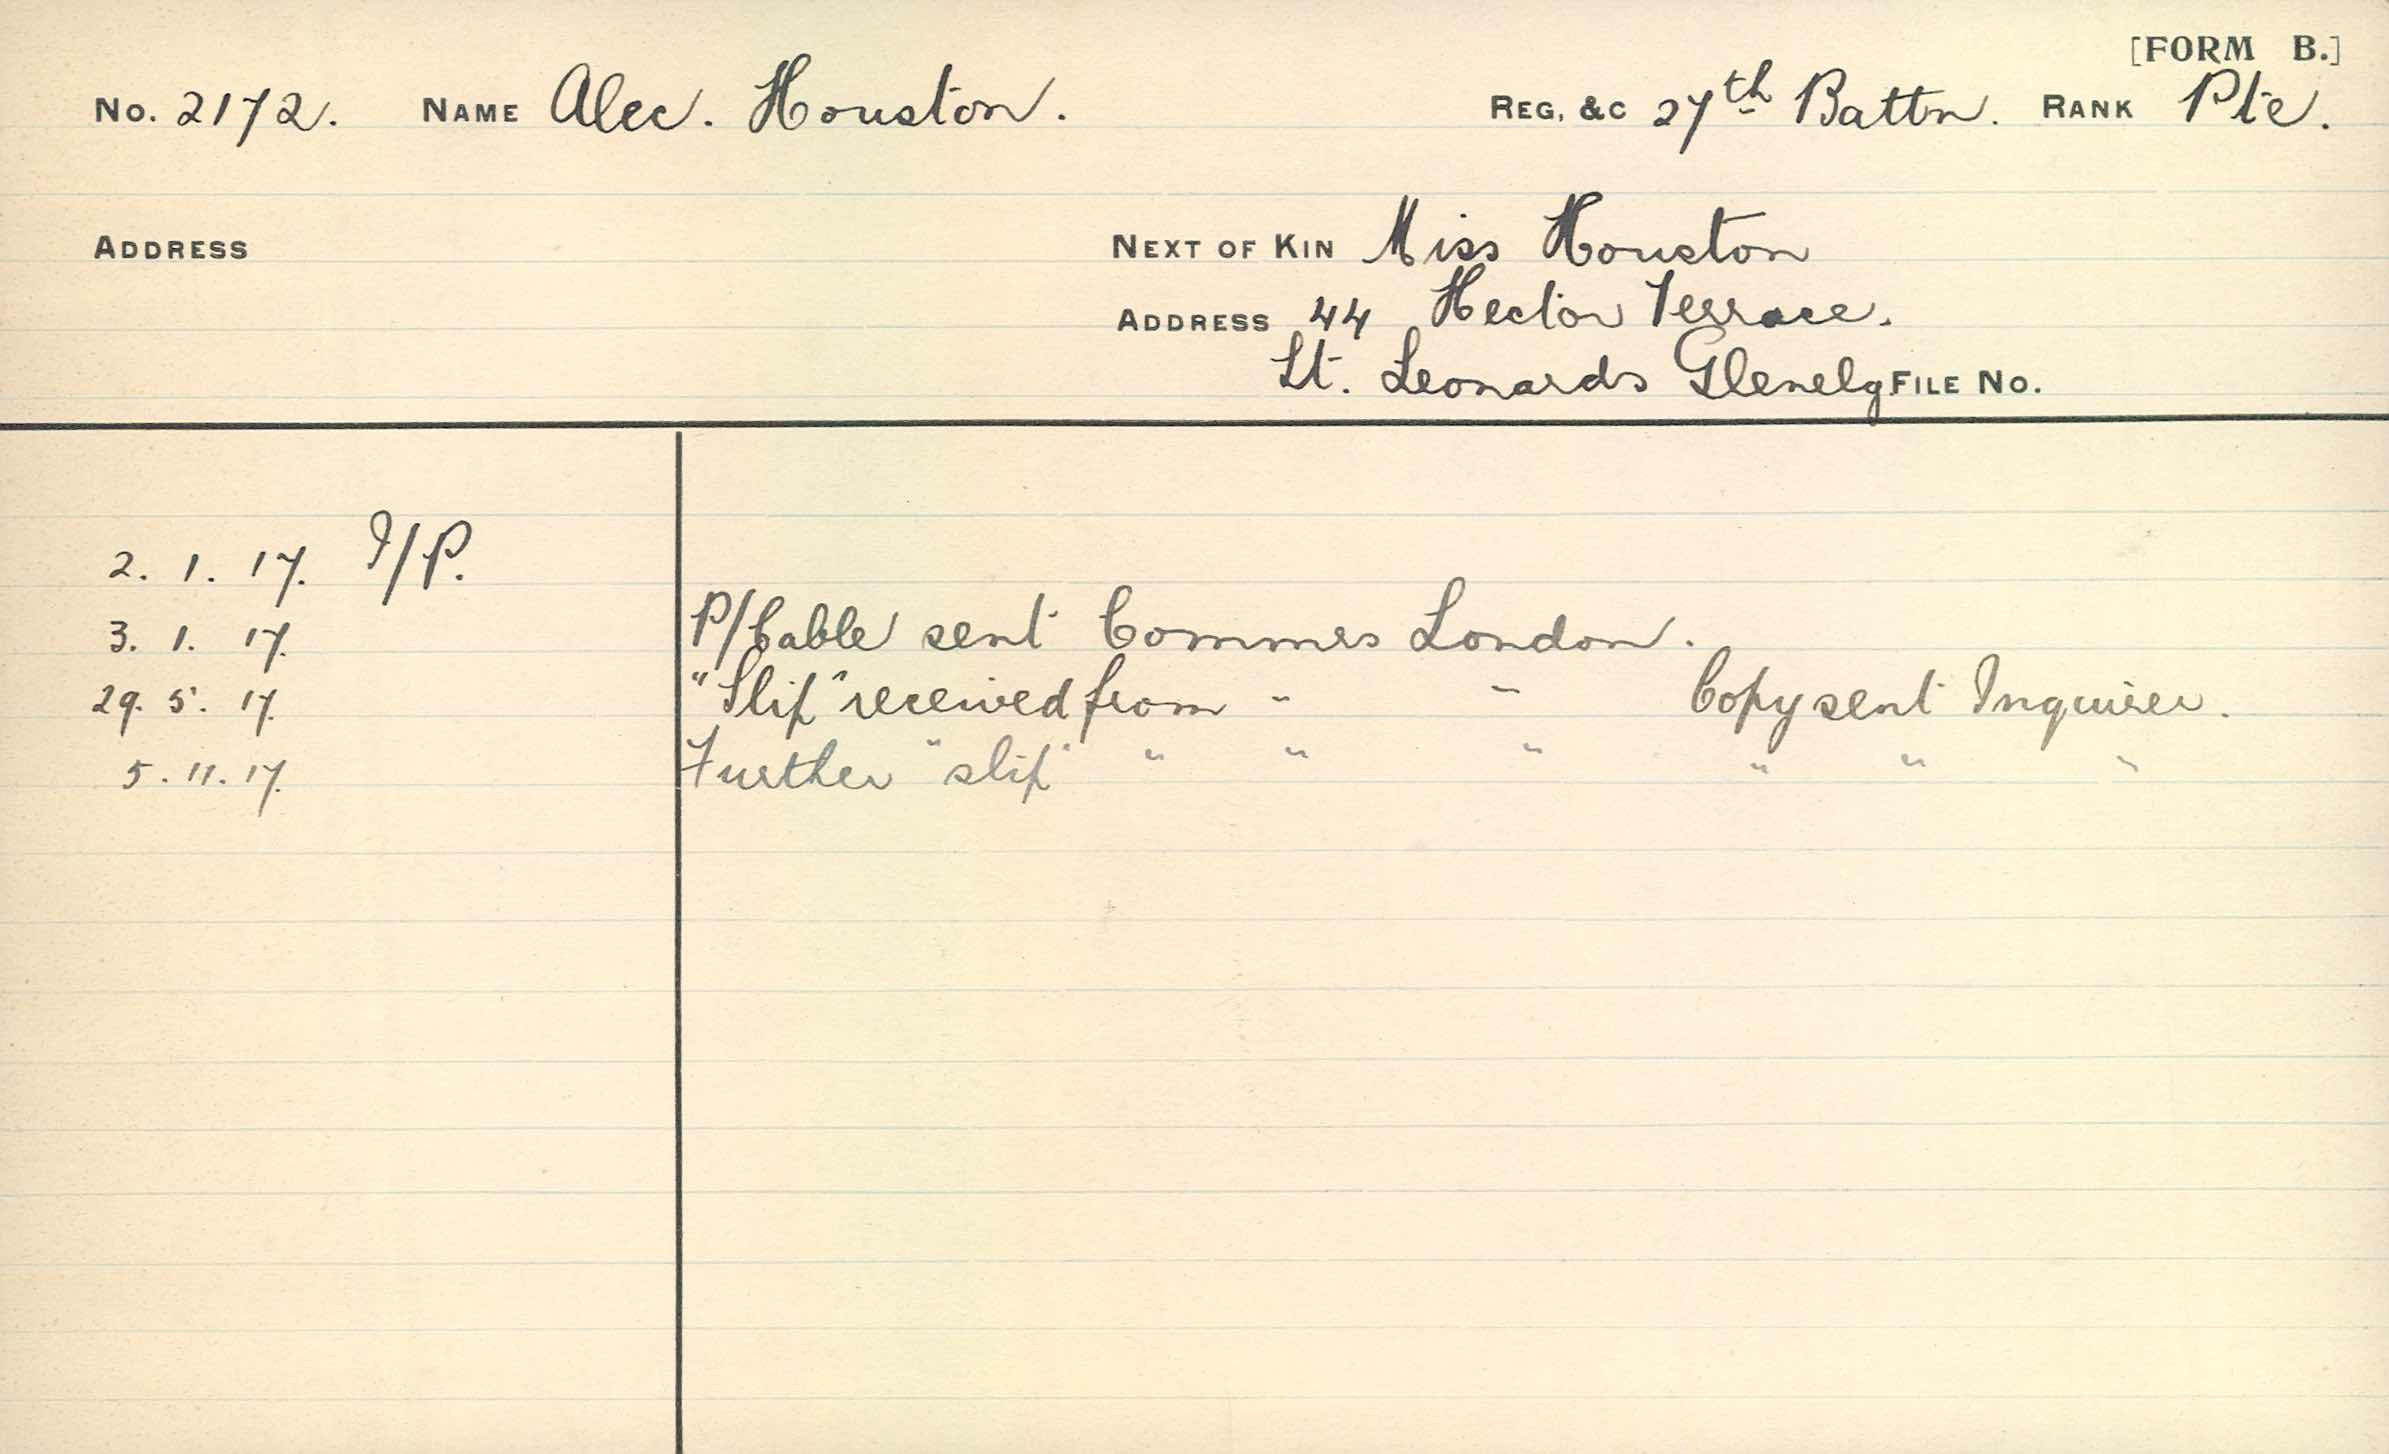 [FORM B.]
No. 2172. NAME Alec. Houston. REG. &C 27th Battn. RANK Pte.
ADDRESS NEXT OF KIN Miss Houston
ADDRESS 44 Hector Terrace.
St. Leonards Glenelg FILE No.
2. 1. 17. I/P.
3. 1. 17. P/Cable sent Commrs London.
29. 5. 17. "Slip" received from " " Copy sent Inquirer.
5. 11. 17. Further "slip" " " " " " "